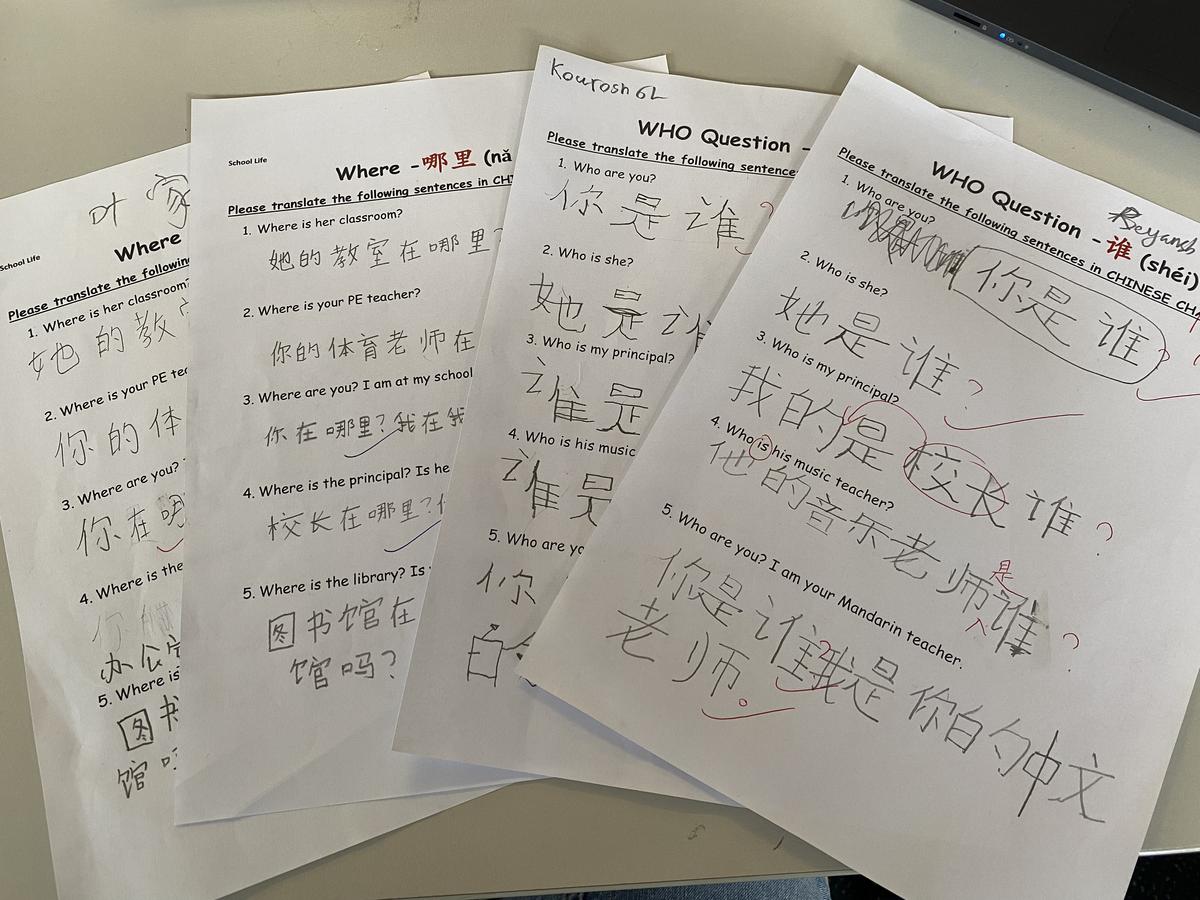 叶 家
School Life
Where
Please translate the following
1. Where is her classroom?
她 的 教 室
2. Where is your PE
你 的 体
3. Where are you?
你 在
4. Where is the
办 公
5. Where is
图 书
馆
School Life
Where - 哪里 (nǎ
Please translate the following sentences in
1. Where is her classroom?
她的 教室在 哪里?
2. Where is your PE teacher?
你的 体育老师在
3. Where are you? I am at my school
你在哪里? 我在我
4. Where is the principal? Is he
校长在哪里?
5. Where is the library? Is
图书馆在
馆吗?
Kourosh 6L
WHO Question -
Please translate the following sentences
1. Who are you?
你 是 谁?
2. Who is she?
她 是 谁
3. Who is my principal?
谁 是
4. Who is his music
谁 是
5. Who are yo
你
Beyansh
WHO Question - 谁 (shéi)
Please translate the following sentences in CHINESE CHA
1. Who are you?
你是 谁?
2. Who is she?
她是 谁?
3. Who is my principal?
我的是 校长 谁?
4. Who is his music teacher?
他的音乐老师是谁?
5. Who are you? I am your Mandarin teacher.
你是谁?我是 你的中文
老师。